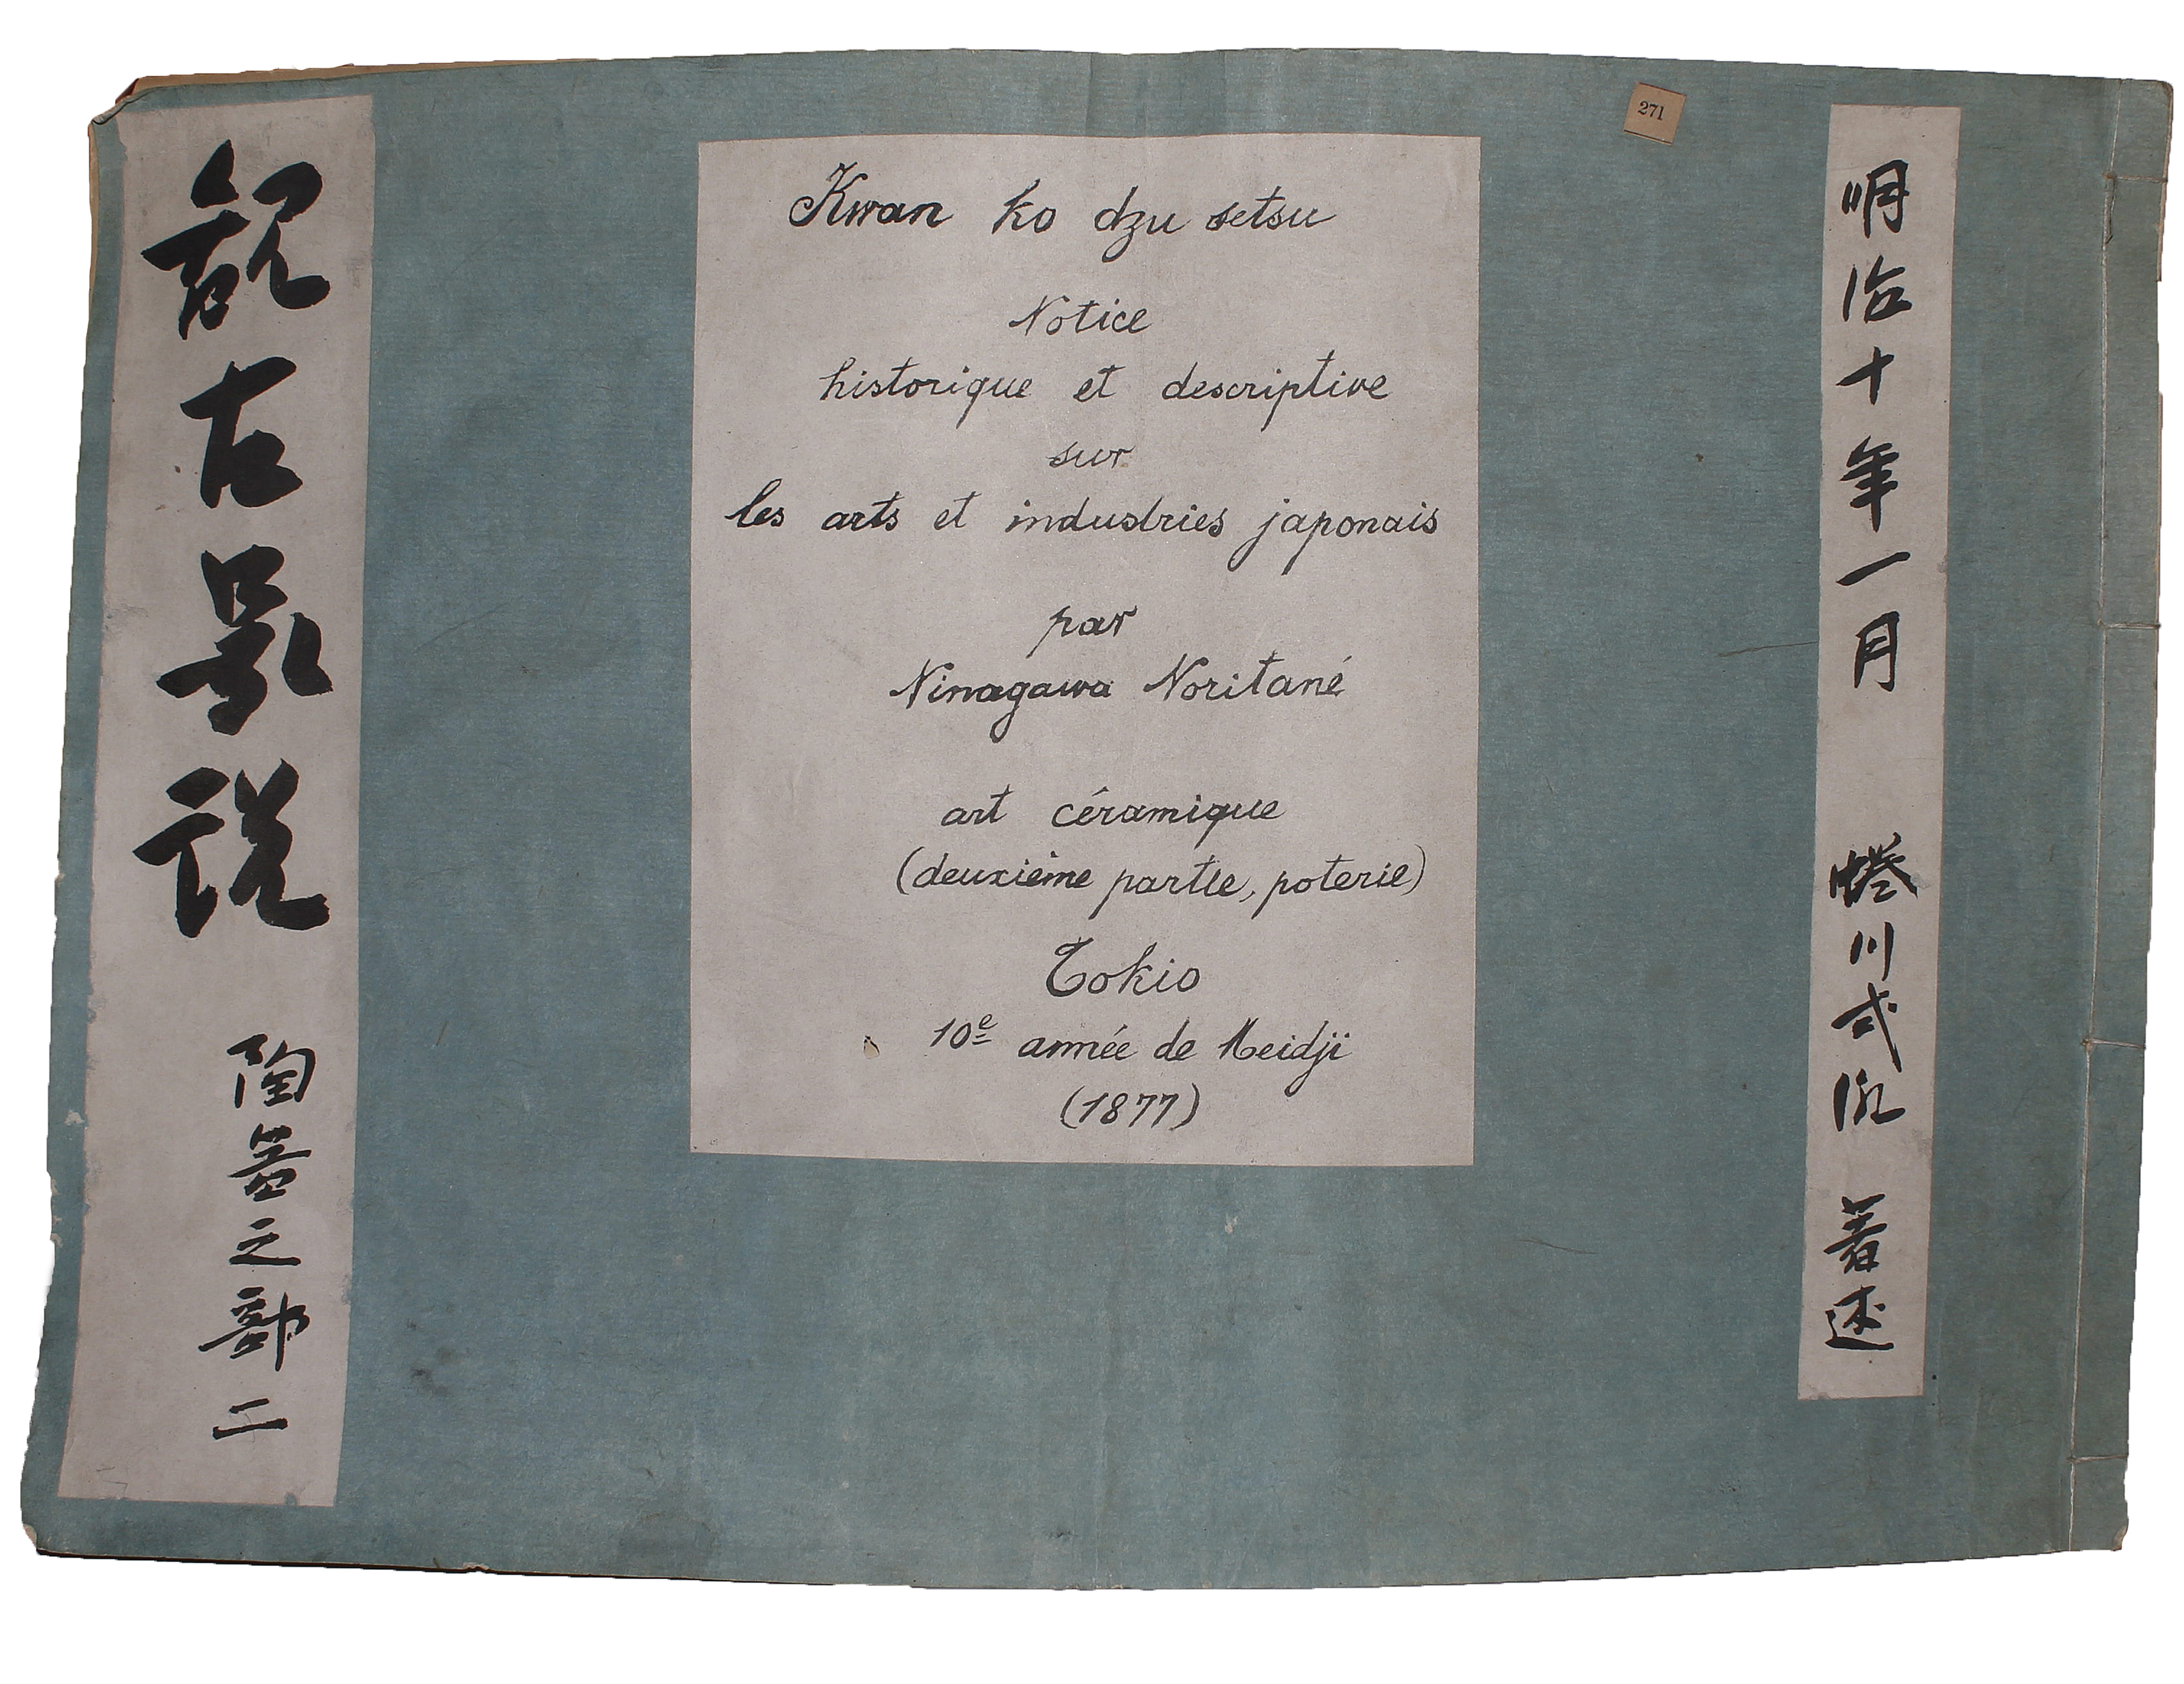 観古図説 陶器之部 二
Kwan ko dzu setsu
Notice
historique et descriptive
sur
les arts et industries japonais
par
Ninagawa Noritané
art céramique
(deuxième partie, poterie)
Tokio
10e année de Meidji
(1877)
271
明治十年一月 蜷川式胤 著述